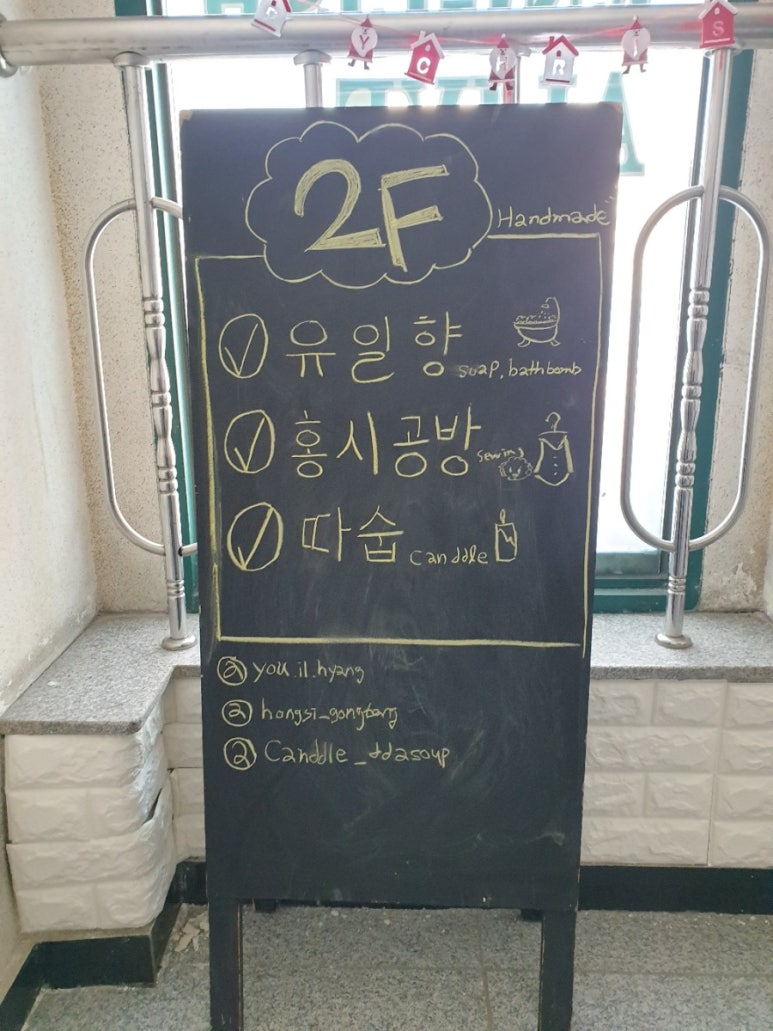 Y CHRIS
2F
Handmade
유일향 soap, bathbomb
홍시공방 sewing
따숩 canddle
@ you.il.hyang
@ hongsi_gongbang
@ Canddle_ddasoup